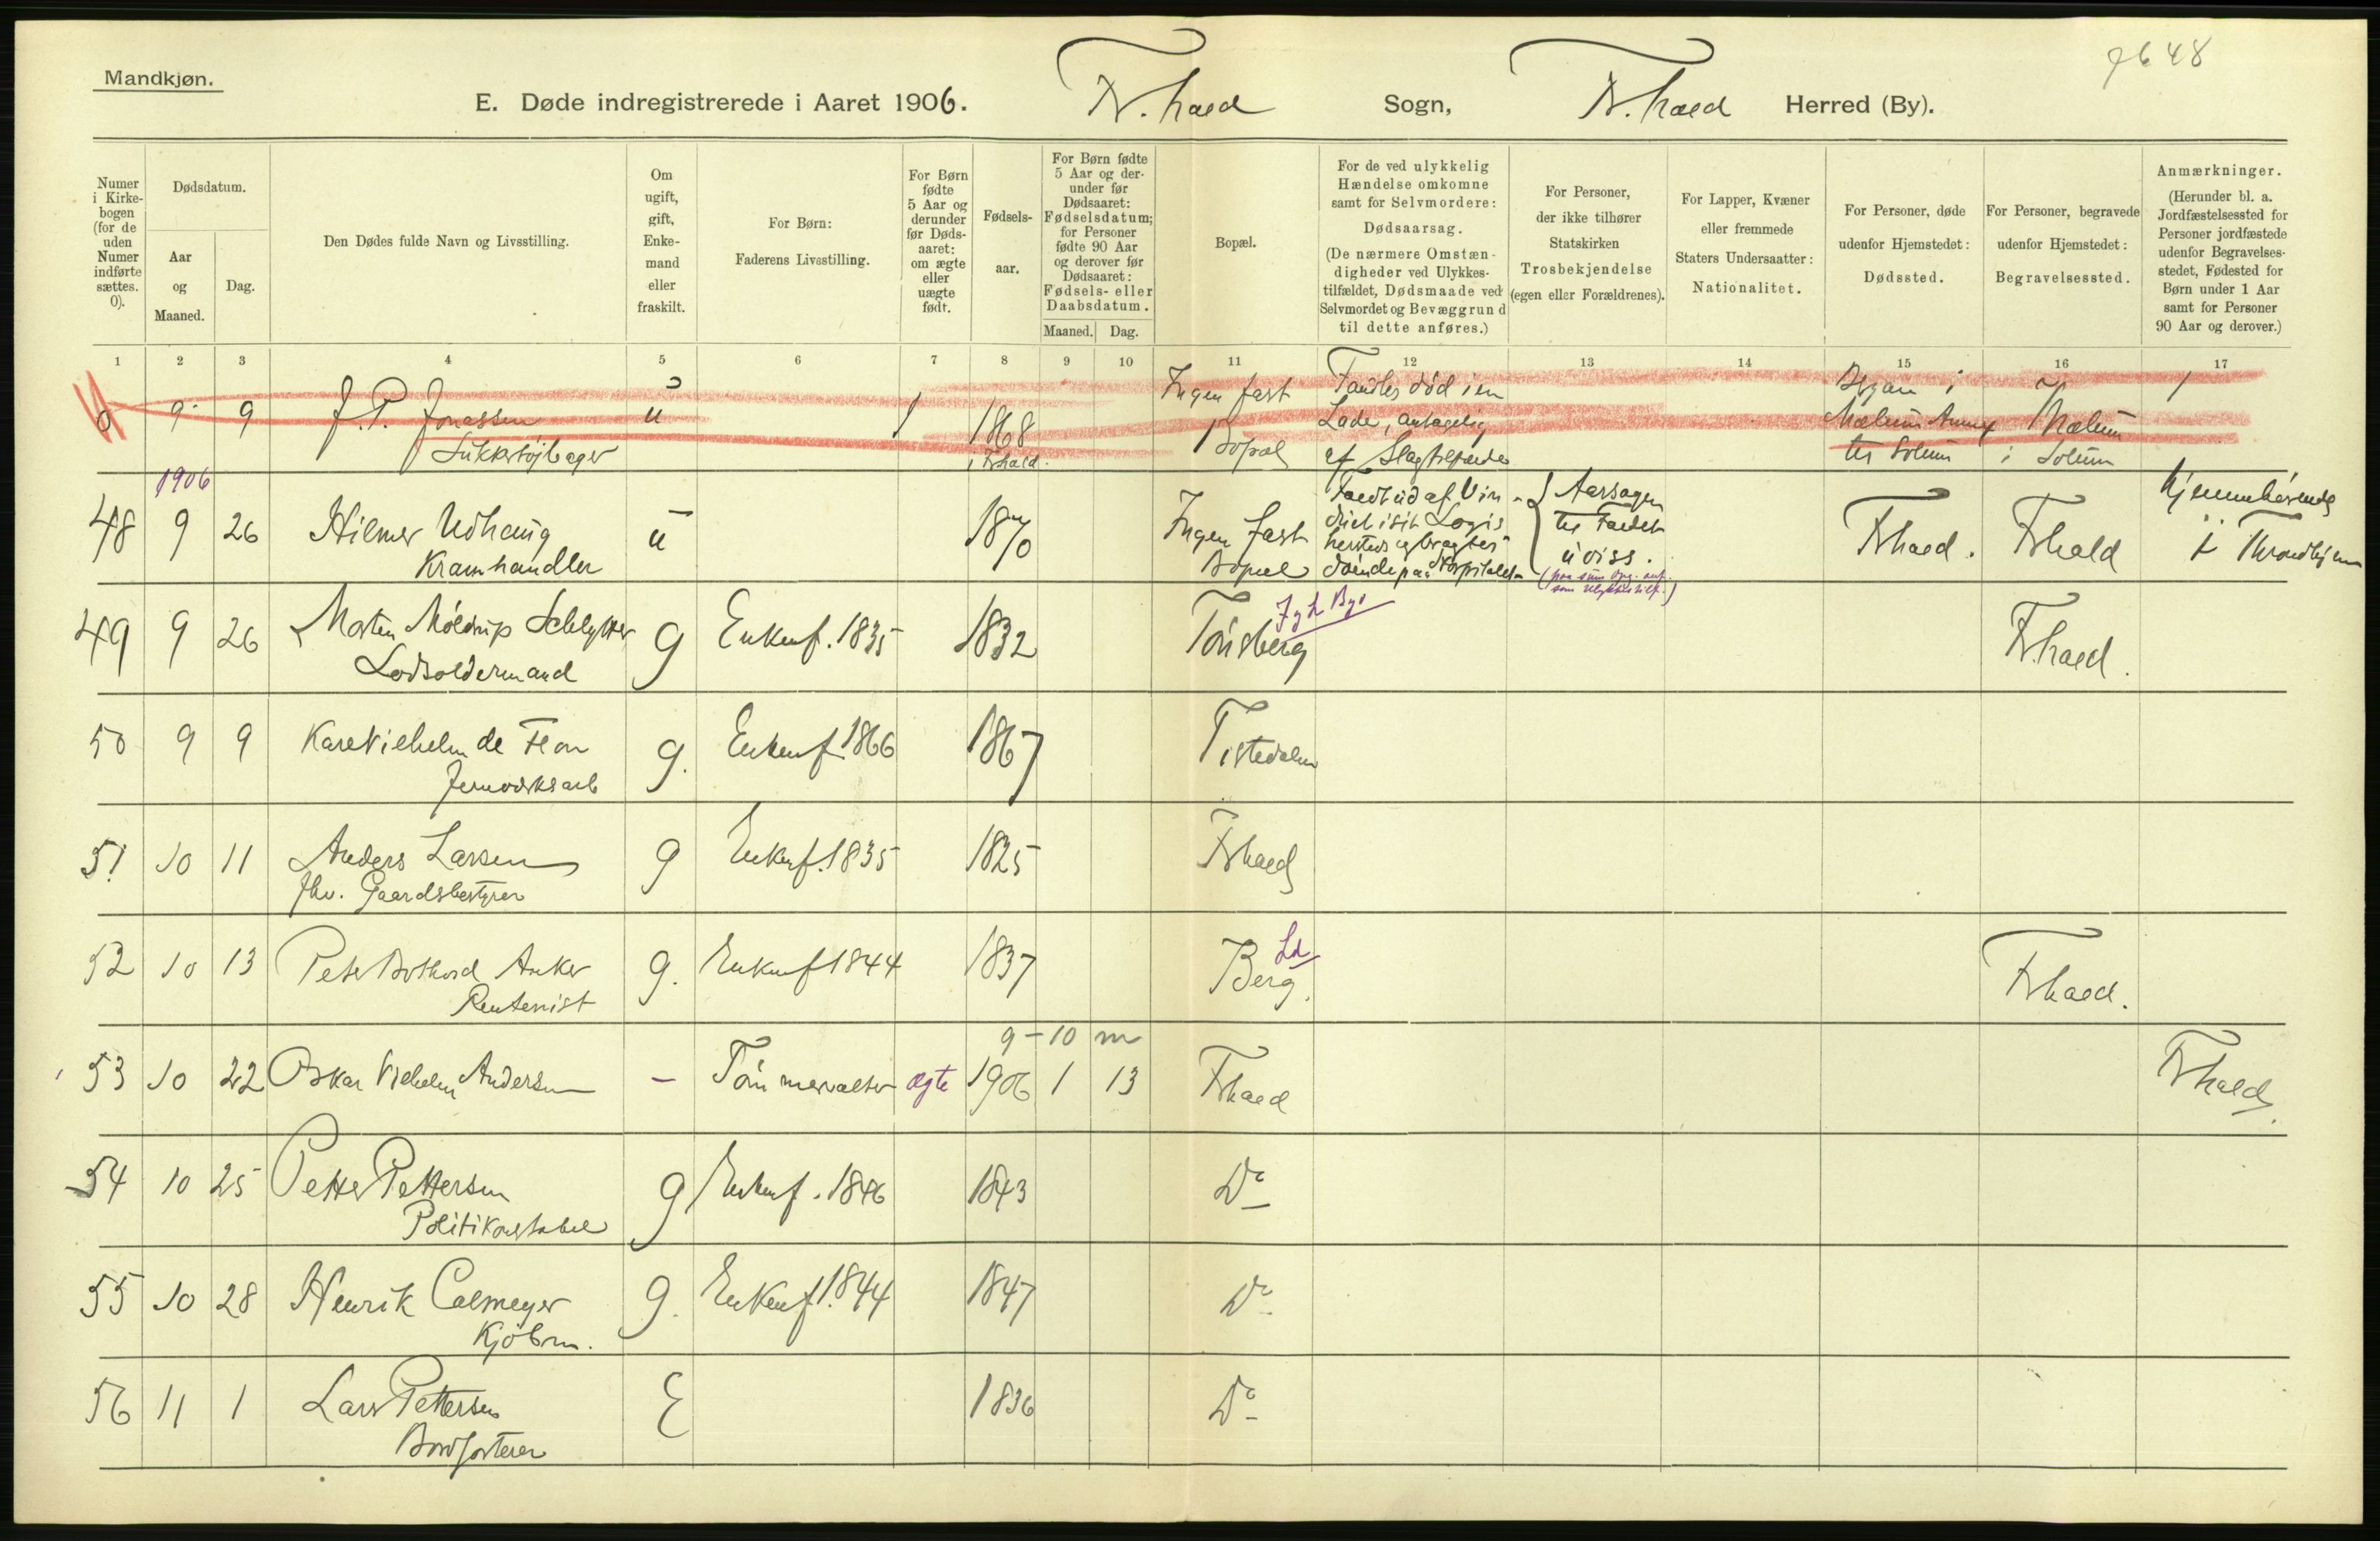 7648
Mandkjøn.
E. Døde indregistrerede i Aaret 1906. Fr.hald Sogn, Fr.hald Herred (By).
Numer i Kirkebogen (for de uden Numer indførte sættes. 0).
Dødsdatum.
Aar og Maaned.
Dag.
Den Dødes fulde Navn og Livsstilling.
Om ugift, gift, Enkemand eller fraskilt.
For Børn: Faderens Livsstilling.
For Børn fødte 5 Aar og derunder før Dødsaaret: om ægte eller uægte født.
Fødselsaar.
For Børn fødte 5 Aar og derunder før Dødsaaret: Fødselsdatum; for Personer fødte 90 Aar og derover før Dødsaaret: Fødsels- eller Daabsdatum.
Maaned. Dag.
Bopæl.
For de ved ulykkelig Hændelse omkomne samt for Selvmordere: Dødsaarsag. (De nærmere Omstændigheder ved Ulykkestilfældet, Dødsmaade ved Selvmordet og Bevæggrund til dette anføres.)
For Personer, der ikke tilhører Statskirken Trosbekjendelse (egen eller Forældrenes).
For Lapper, Kvæner eller fremmede Staters Undersaatter: Nationalitet.
For Personer, døde udenfor Hjemstedet: Dødssted.
For Personer, begravede udenfor Hjemstedet: Begravelsessted.
Anmærkninger. (Herunder bl. a. Jordfæstelsessted for Personer jordfæstede udenfor Begravelsesstedet, Fødested for Børn under 1 Aar samt for Personer 90 Aar og derover.)
1 2 3 4 5 6 7 8 9 10 11 12 13 14 15 16 17
0 9 9 J. P. Jonassen u 1868 Ingen fast Bopæl Fandtes død i en Lade, antagelig af Slagtilfælde Mælum Annex til Solum Mælum i Solum
i Frhald.
1906
48 9 26 Hilmer Udhaug ū 1870 Ingen fast Bopæl Faldt ud af Vin- Aarsagen til Faldet uviss. Frhald. Frhald hjemmehørende i Throndhjem
Kramhandler
49 9 26 Morten Möldrup Schlytter g Enkenf. 1835 1832 Tönsberg Fr.hald.
Lodsoldermand
50 9 9 Karl Vilhelm de Flon g. Enkenf 1866 1867 Tistedalen
Jernverksarb
51 10 11 Anders Larsen g Enkenf. 1835 1825 Frhald
fhv. Gaardsbestyrer
52 10 13 Peter Anker g. Enkenf 1844 1837 Berg. Ld Frhald.
Rentenist
9-10 m
53 10 22 Oskar Vilhelm Andersen - ægte 1906 1 13 Frhald Frhald.
54 10 25 Petter Pettersen g Enkenf. 1846 1843 Do
Politikonstabel
55 10 28 Henrik Calmeyer g. Enkenf. 1844 1847 Do
Kjöbm.
56 11 1 Lars Pettersen E 1836 Do